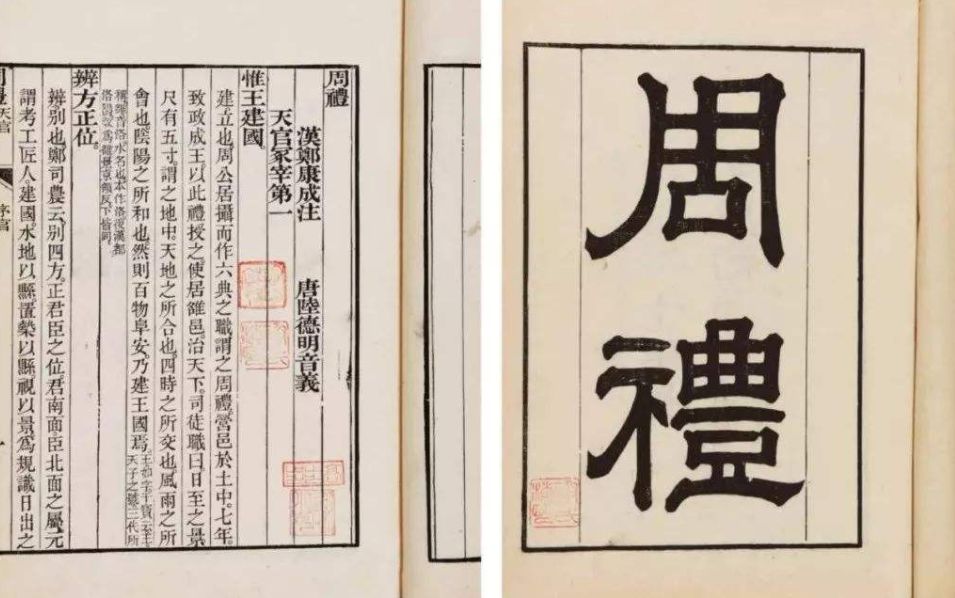 周禮
周禮
漢鄭康成注 唐陸德明音義
天官冢宰第一
惟王建國。
建立也。周公居攝而作六典之職謂之周禮。營邑於土中。七年。
致政成王。以此禮授之。使居雒邑。治天下。司徒職曰。日至之景
尺有五寸。謂之地中。天地之所合也。四時之所交也。風雨之所
會也。陰陽之所和也。然則百物阜安。乃建王國焉。王如字干寶云王
天子之號三代所
稱雒音洛水名也本作洛後漢都
洛陽改爲雒景京領反下皆同
辨方正位。
辨。別也。鄭司農云。別四方。正君臣之位。君南面。臣北面之屬。元
謂考工匠人建國。水地以縣。置槷以縣。視以景。爲規。識日出之
周禮天官 序官